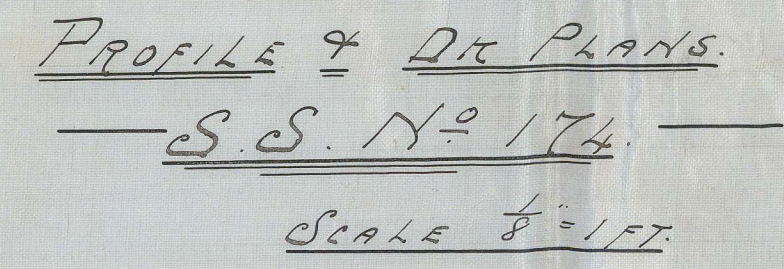 PROFILE & DK PLANS.
S.S. Nº 174.
SCALE 1/8" = 1 FT.